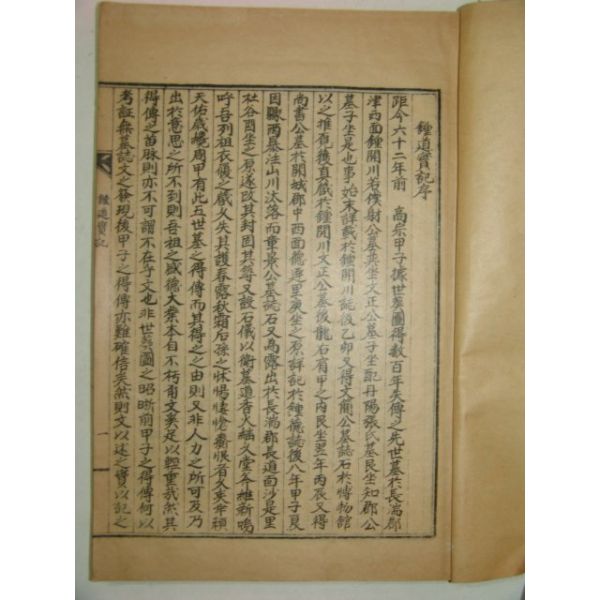 鍾道實記序
距今六十二年前 高宗甲子據世葬圖得數百年失傳之先世墓於長湍郡
津西面鍾開川若僕射公墓巽坐文正公墓子坐配丹陽張氏墓艮坐知郡公
墓子坐是也事始末詳載於鍾開川誌後乙卯又得文簡公墓誌石於博物館
以之推覓後真藏於鍾開川文正公墓後龍右有甲之內艮坐翌年丙辰又得
尚書公墓於開城郡中西面麓遲里庚坐之原詳記於鍾麓誌後八年甲子夏
因驟雨暴注山川汰落而章景公墓誌石又為露出於長湍郡長道面沙是里
杜谷酉坐之原遂改其封固其莎又設石儀以衛墓道香火緬久堂斧維新嗚
呼吾列祖衣履之藏久失其護春露秋霜后孫之怵惕悽愴齎恨者久矣幸賴
天佑歲幾周甲有此五世墓之得傳而其得之之由則又非人力之所可及乃
出於意思之所不到則吾祖之盛德大業本自不朽有文奚足以輕重哉然其
得傳之苗脉則亦不可謂不在乎文也非世葬圖之昭晰前甲子之得傳何以
考証無墓誌文之發現後甲子之得傳亦難確信矣然則文以述之實以記之
鍾道實記
一